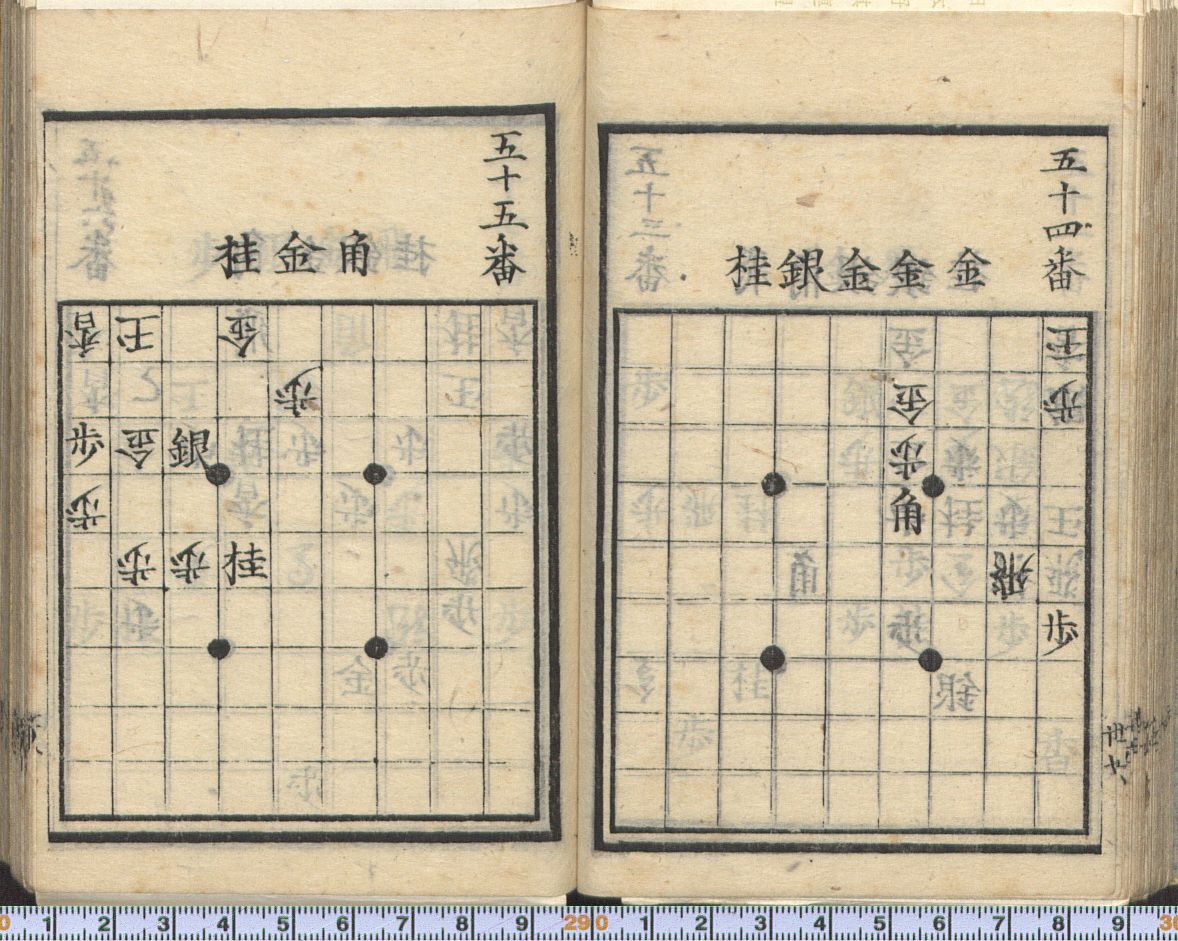 五十四番
金金金銀桂
金 王
金 歩
歩
角
飛
歩
五十五番
角金桂
香 王 金
歩
歩 金 銀
歩
歩 歩 桂
0 1 2 3 4 5 6 7 8 9 29 0 1 2 3 4 5 6 7 8 9 30